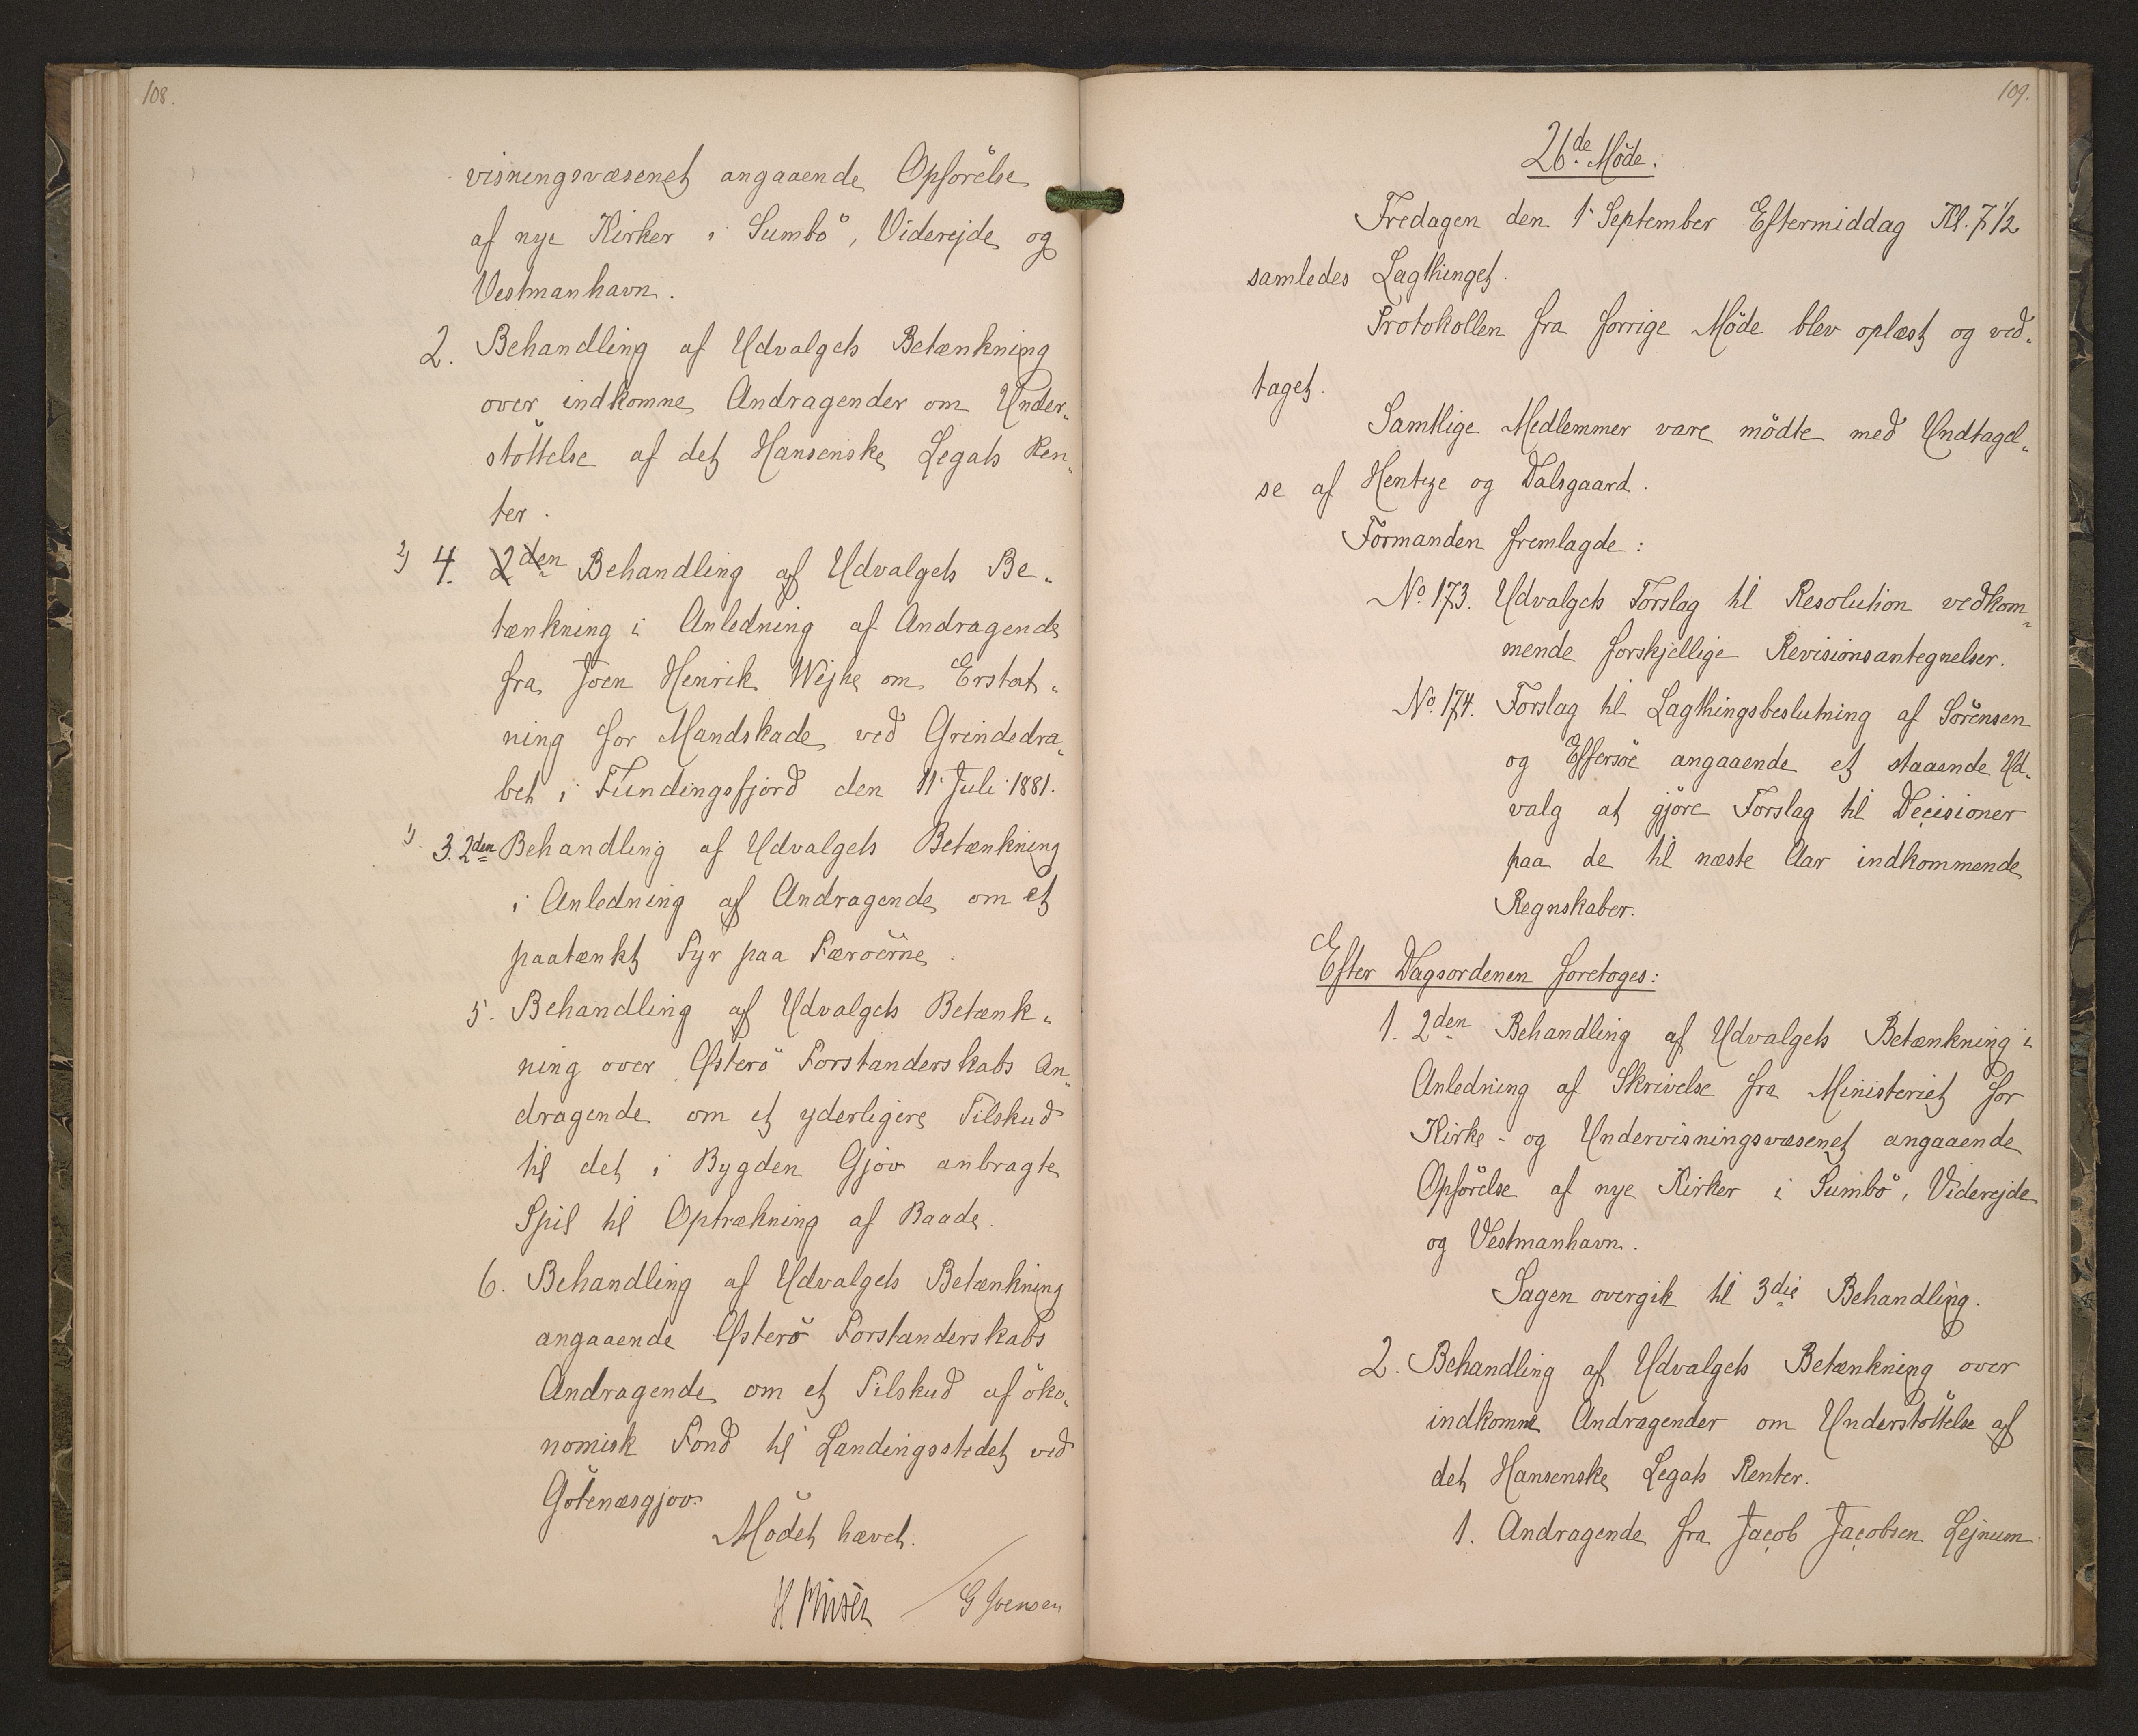 108.
visningsvæsenet angaaende Opförelse
af nye Kirker i Sumbö, Viderejde og
Vestmanhavn.
2. Behandling af Udvalgets Betænkning
over indkomne Andragender om Under-
stöttelse af det Hansenske Legats Ren-
ter.
4. 2den Behandling af Udvalgets Be-
tænkning i Anledning af Andragende
fra Joen Henrik Wejhe om Erstat-
ning for Mandskade ved Grindedra-
bet i Fundingsfjord den 11' Juli 1881.
3. 2den Behandling af Udvalgets Betænkning
i Anledning af Andragende om et
paatænkt Fyr paa Færöerne.
5. Behandling af Udvalgets Betænk-
ning over Østerö Forstanderskabs An-
dragende om et yderligere Tilskud
til det i Bygden Gjov anbragte
Spil til Optrækning af Baade.
6. Behandling af Udvalgets Betænkning
angaaende Østerö Forstanderskabs
Andragende om et Tilskud af öko-
nomisk Fond til Landingsstedet ved
Götenæsgjov.
Mödet hævet.
G Joensen
109.
26de Möde.
Fredagen den 1' September Eftermiddag Kl. 7 1/2
samledes Lagthinget.
Protokollen fra forrige Möde blev oplæst og ved-
taget.
Samtlige Medlemmer vare mödte med Undtagel-
se af Hentze og Dalsgaard.
Formanden fremlagde:
No. 173. Udvalgets Forslag til Resolution vedkom-
mende forskjellige Revisionsantegnelser.
No. 174. Forslag til Lagthingsbeslutning af Sörensen
og Effersöe angaaende et staaende Ud-
valg at gjöre Forslag til Decisioner
paa de til næste Aar indkommende
Regnskaber.
Efter Dagsordenen foretoges:
1. 2den Behandling af Udvalgets Betænkning i
Anledning af Skrivelse fra Ministeriet for
Kirke- og Undervisningsvæsenet angaaende
Opförelse af nye Kirker i Sumbö, Viderejde
og Vestmanhavn.
Sagen overgik til 3die Behandling.
2. Behandling af Udvalgets Betænkning over
indkomne Andragender om Understöttelse af
det Hansenske Legats Renter.
1. Andragende fra Jacob Jacobsen Lejnum